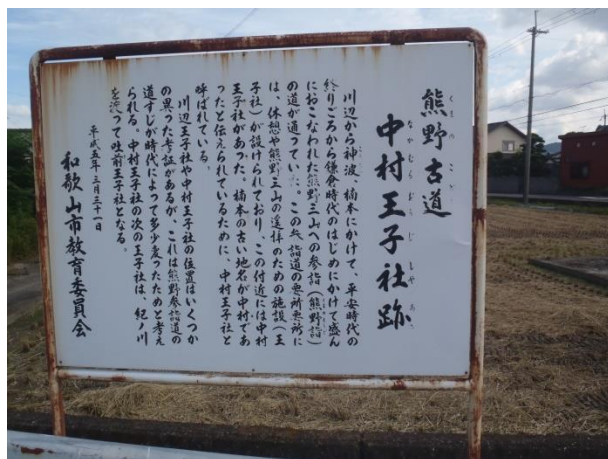 熊野古道
くまのこどう
中村王子社跡
なかむらおうじしゃあと
川辺から神波、楠本にかけて、平安時代の
終りごろから鎌倉時代のはじめにかけて盛ん
におこなわれた熊野三山への参詣（熊野詣）
の道が通っていた。この参詣道の要所要所に
は、休憩や熊野三山の遥拝のための施設（王
子社）が設けられており、この付近には中村
王子社があった。楠本の古い地名が中村であ
ったと伝えられているために、中村王子社と
呼ばれている。
川辺王子社や中村王子社の位置はいくつか
の異った考証があるが、これは熊野参詣道の
道すじが時代によって多少変ったためと考え
られる。中村王子社の次の王子社は、紀ノ川
を渡って吐前王子社となる。
平成五年三月三十一日
和歌山市教育委員会